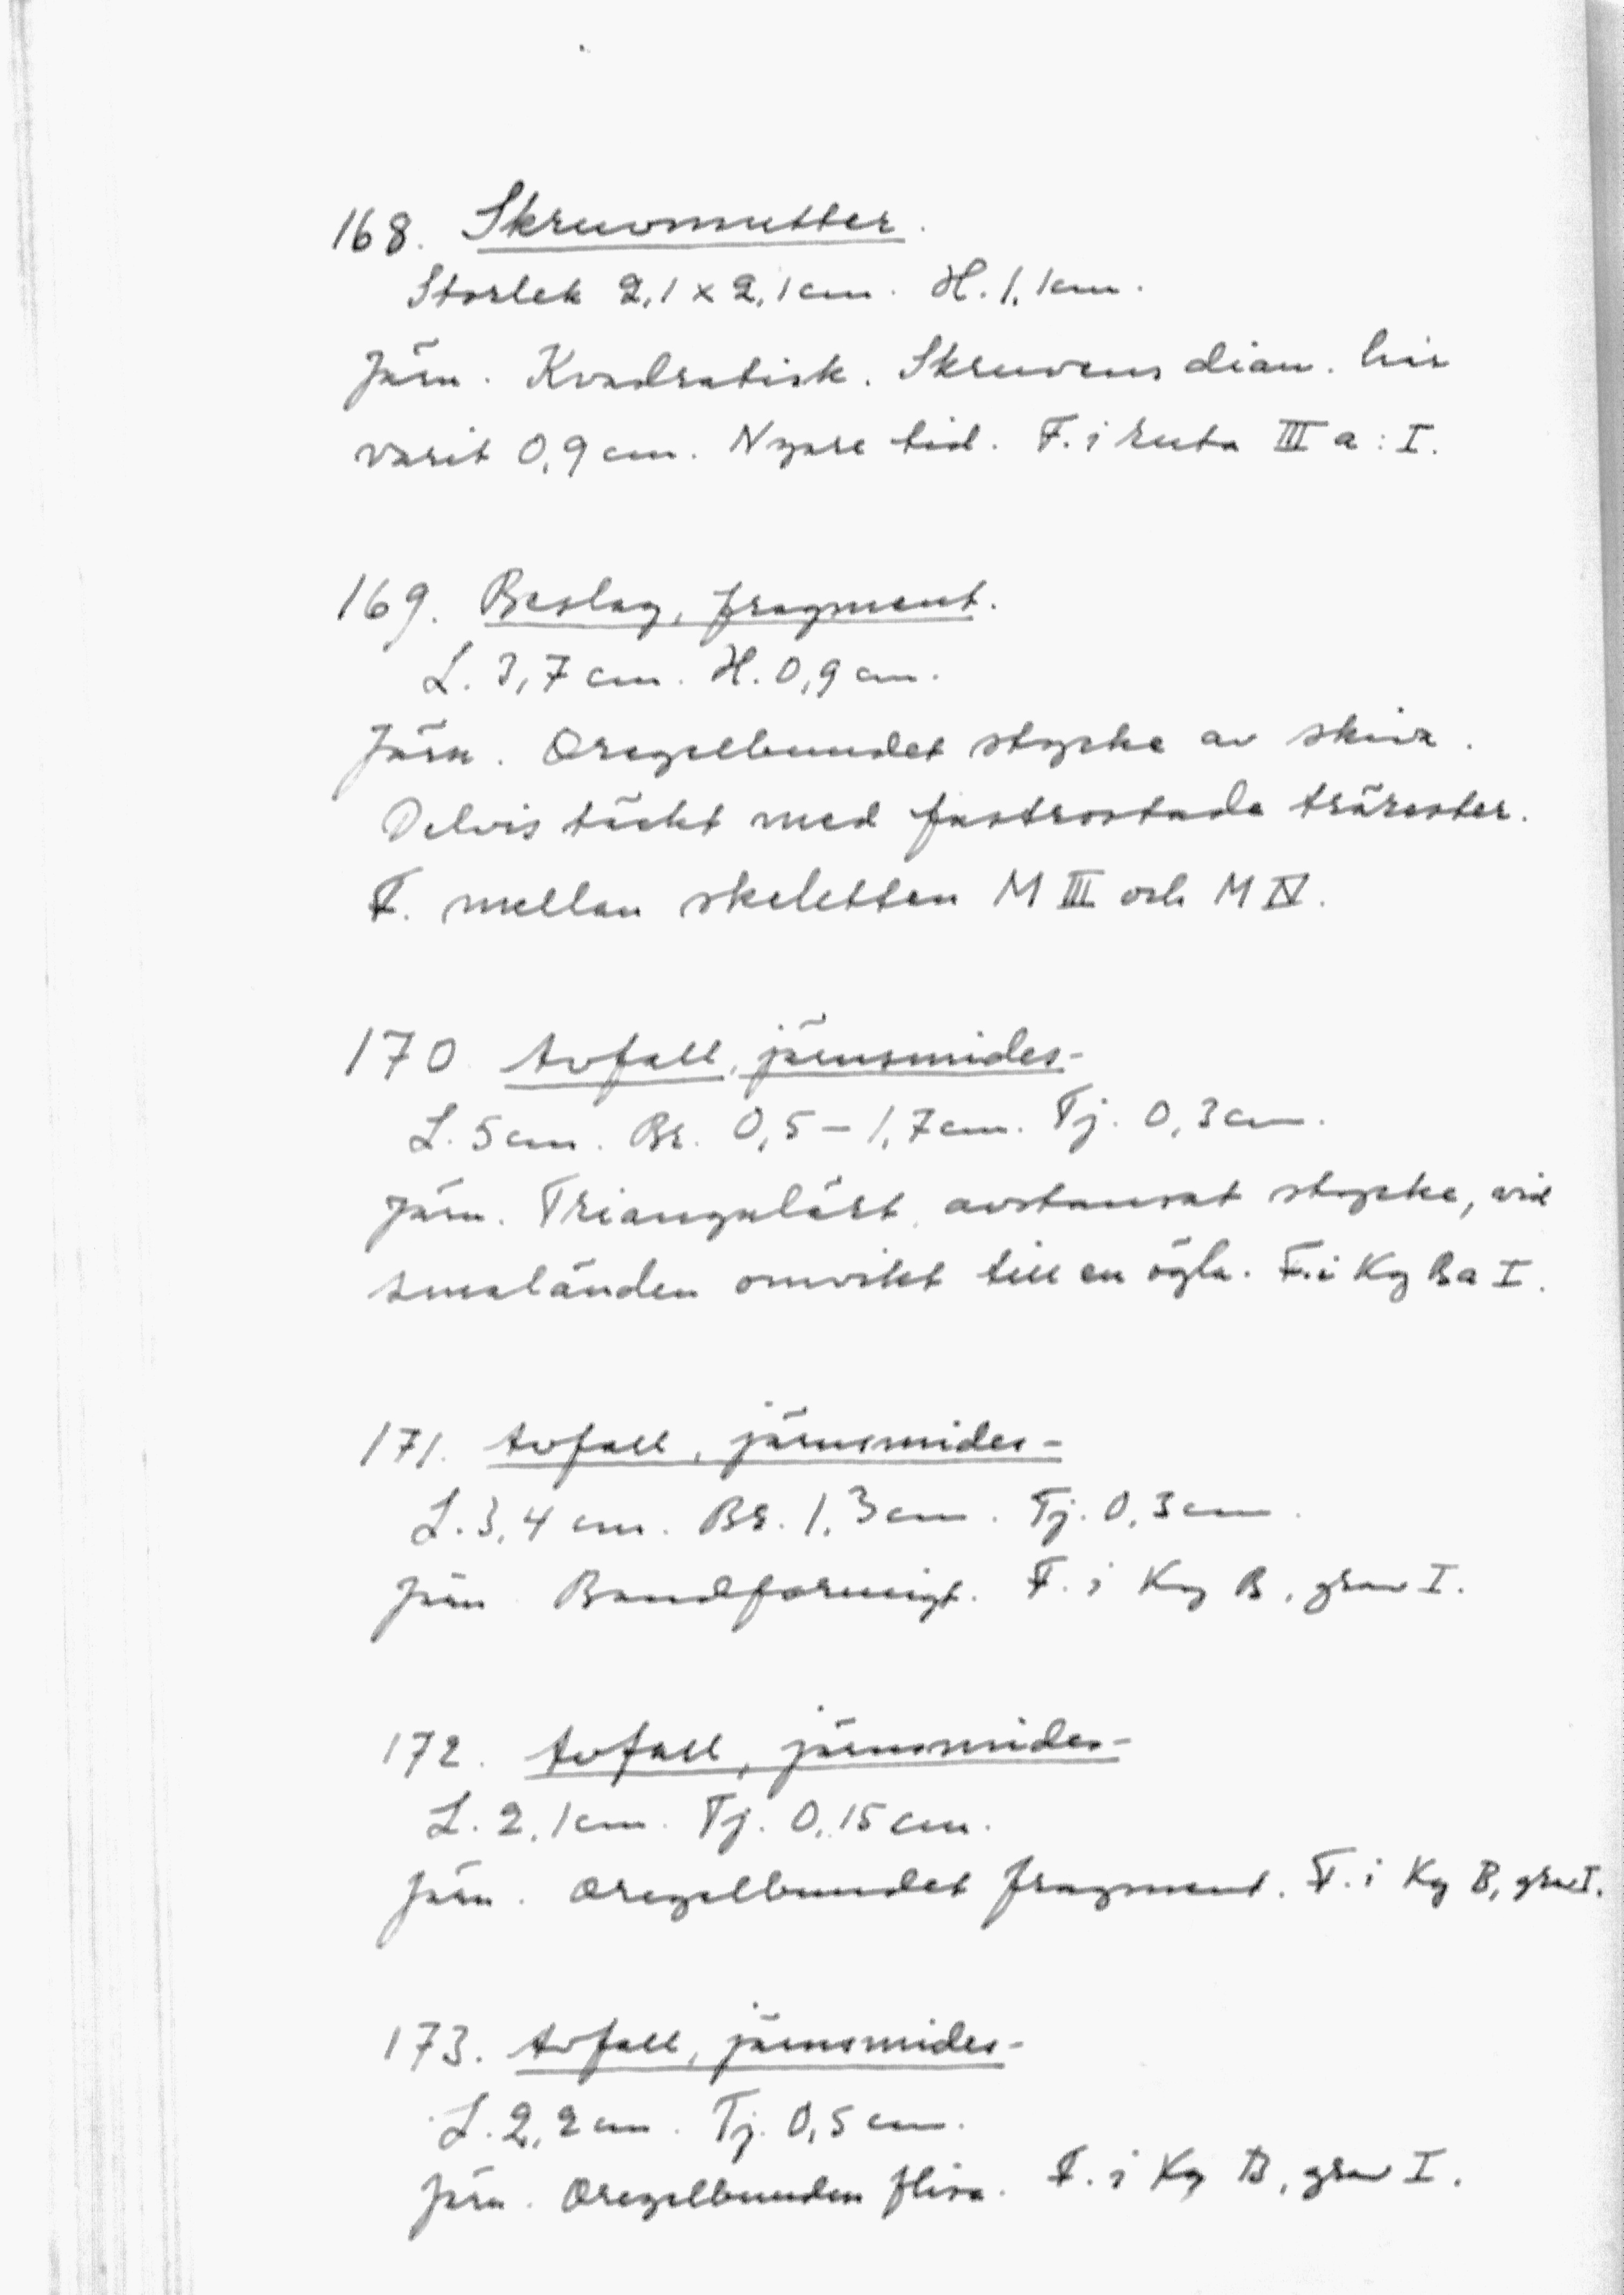 168. Skruvmutter.
Storlek 2,1 x 2,1 cm. H. 1,1 cm.
Järn. Kvadratisk. Skruvens diam. här
varit 0,9 cm. Nyare tid. F. i ruta III a : I.
169. Beslag, fragment.
L. 3,7 cm. H. 0,9 cm.
Järn. Oregelbundet stycke av skiva.
Delvis täckt med fastrostade trärester.
F. mellan skeletten M III och M IV.
170 Avfall, järnsmides-
L. 5 cm. Br. 0,5 – 1,7 cm. Tj. 0,3 cm.
Järn. Triangulärt, avstansat stycke, vid
smaländen omvikt till en ögla. F. i Kg B a I.
171. Avfall, järnsmides-
L. 3,4 cm. Br. 1,3 cm. Tj. 0,3 cm.
Järn Bandformigt. F. i Kg B, grav I.
172. Avfall, järnsmides-
L. 2,1 cm. Tj. 0,15 cm.
Järn. Oregelbundet fragment. F. i Kg B, grav I.
173. Avfall, järnsmides-
L. 2,2 cm. Tj. 0,5 cm.
Järn. Oregelbunden flisa. F. i Kg B, grav I.